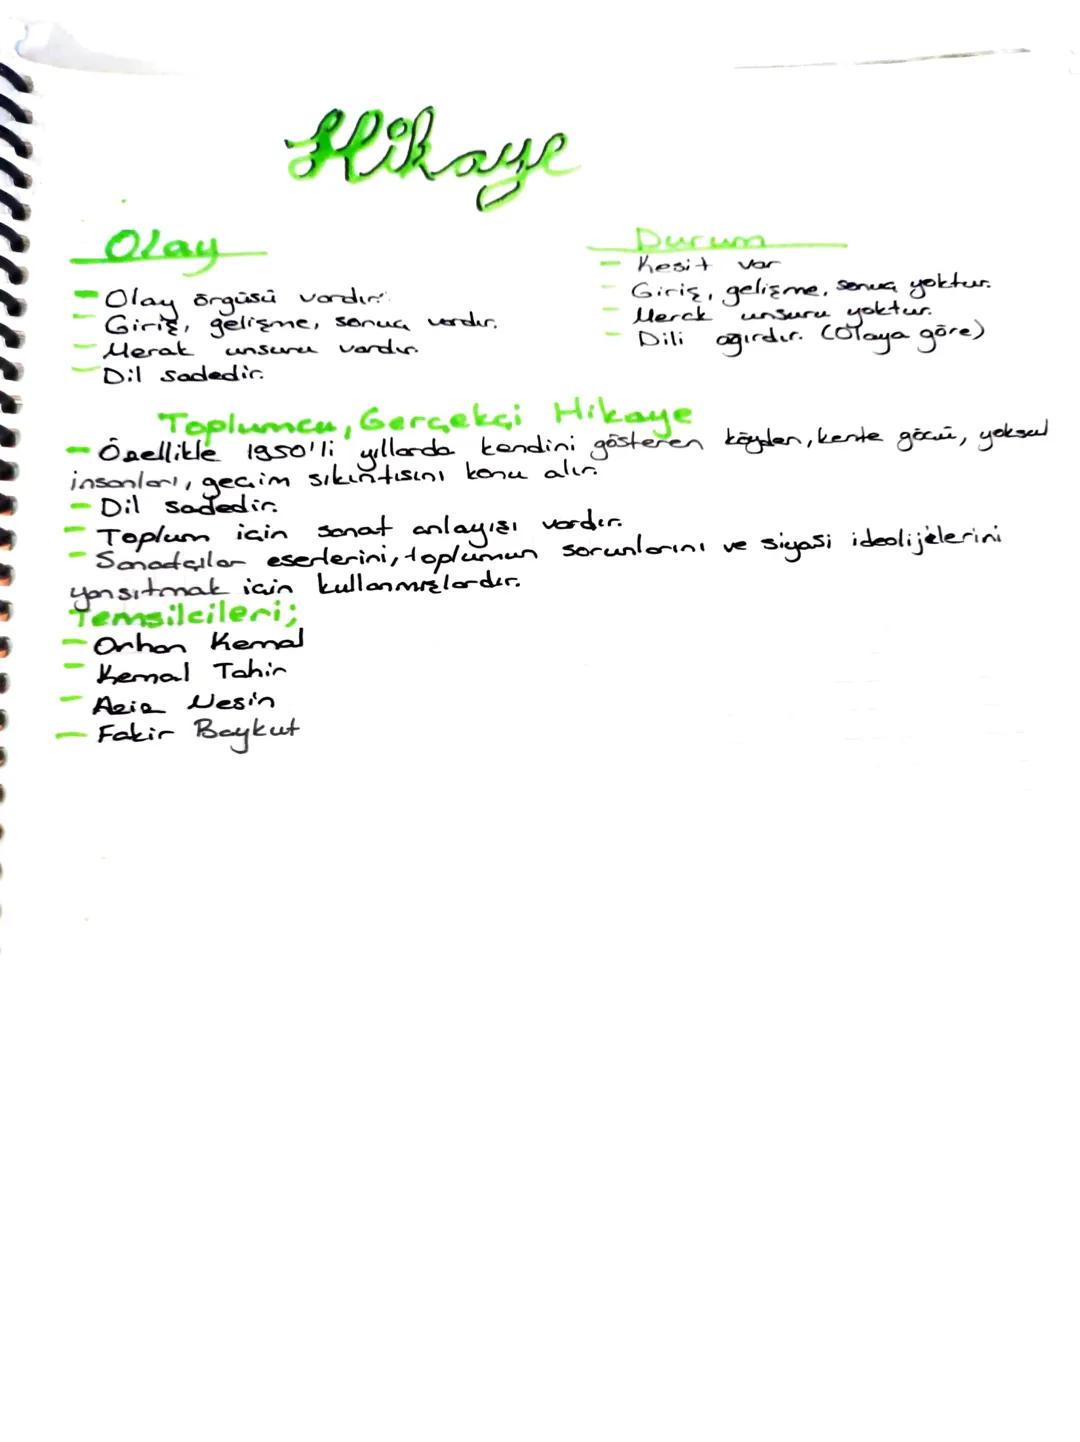 Hikaye
Olay
- Olay örgüsü vardır.
- Giriş, gelişme, sonuç vardır.
- Merak unsuru vardır.
- Dil sadedir.
Durum
- Kesit var
- Giriş, gelişme, sonuç yoktur.
- Merak unsuru yoktur.
- Dili ağırdır. (Olaya göre)
Toplumcu, Gerçekçi Hikaye
- Özellikle 1950'li yıllarda kendini gösteren köyden, kente göçü, yoksul
insanları, geçim sıkıntısını konu alır.
- Dil sadedir.
- Toplum için sanat anlayışı vardır.
- Sanatçılar eserlerini, toplumun sorunlarını ve siyasi ideolijelerini
yansıtmak için kullanmışlardır.
Temsilcileri;
- Orhan Kemal
- Kemal Tahir
- Aziz Nesin
- Fakir Baykut